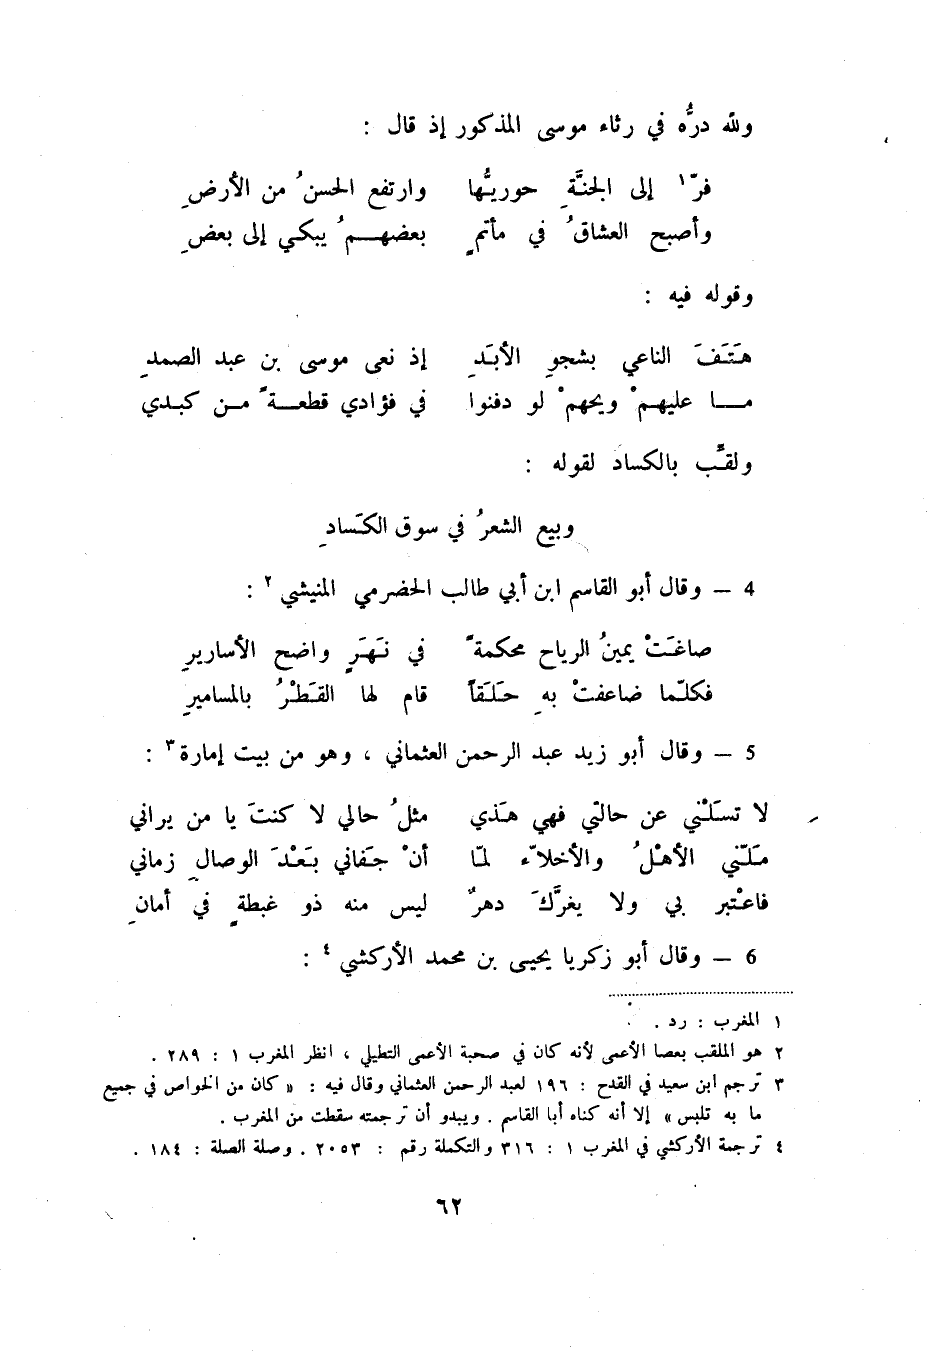 ولله درُّه في رثاء موسى المذكور إذ قال :
فرّ١ إلى الجنَّةِ حوريُّها وارتفع الحسنُ من الأرضِ
وأصبح العشاقُ في مأتمٍ بعضهـــمُ يبكـي إلى بعضِ
وقوله فيه :
هَتَفَ الناعي بشجوِ الأبَدِ إذ نعى موسى بن عبد الصمدِ
مـــا عليهمْ ويحهمْ لو دفنوا في فؤادي قطعـــةً مـن كبدي
ولقِّب بالكساد لقوله :
وبيع الشعرُ في سوق الكَسادِ
4 – وقال أبو القاسم ابن أبي طالب الحضرمي المنيشي ٢ :
صاغَتْ يمينُ الرياح محكمةً في نَهَرٍ واضح الأساريرِ
فكلّما ضاعفتْ بهِ حَلَقاً قام لها القَطْرُ بالمساميرِ
5 – وقال أبو زيد عبد الرحمن العثماني ، وهو من بيت إمارة٣ :
لا تسَلْني عن حالتي فهي هَذي مثلُ حالي لا كنتَ يا من يراني
مَلّني الأهْلُ والأخلاّء لمّا أنْ جَفاني بَعْدَ الوصالِ زماني
فاعْتبر بي ولا يغرَّكَ دهرٌ ليس منه ذو غبطةٍ في أمانِ
6 – وقال أبو زكريا يحيى بن محمد الأركشي ٤ :
١ المغرب : رد .
٢ هو الملقب بعصا الأعمى لأنه كان في صحبة الأعمى التطيلي ، انظر المغرب ١ : ٢٨٩ .
٣ ترجم ابن سعيد في القدح : ١٩٦ لعبد الرحمن العثماني وقال فيه : « كان من الخواص في جميع
ما به تلبس » إلا أنه كناه أبا القاسم . ويبدو أن ترجمته سقطت من المغرب .
٤ ترجمة الأركشي في المغرب ١ : ٣١٦ والتكملة رقم : ٢٠٥٣ . وصلة الصلة : ١٨٤ .
٦٢